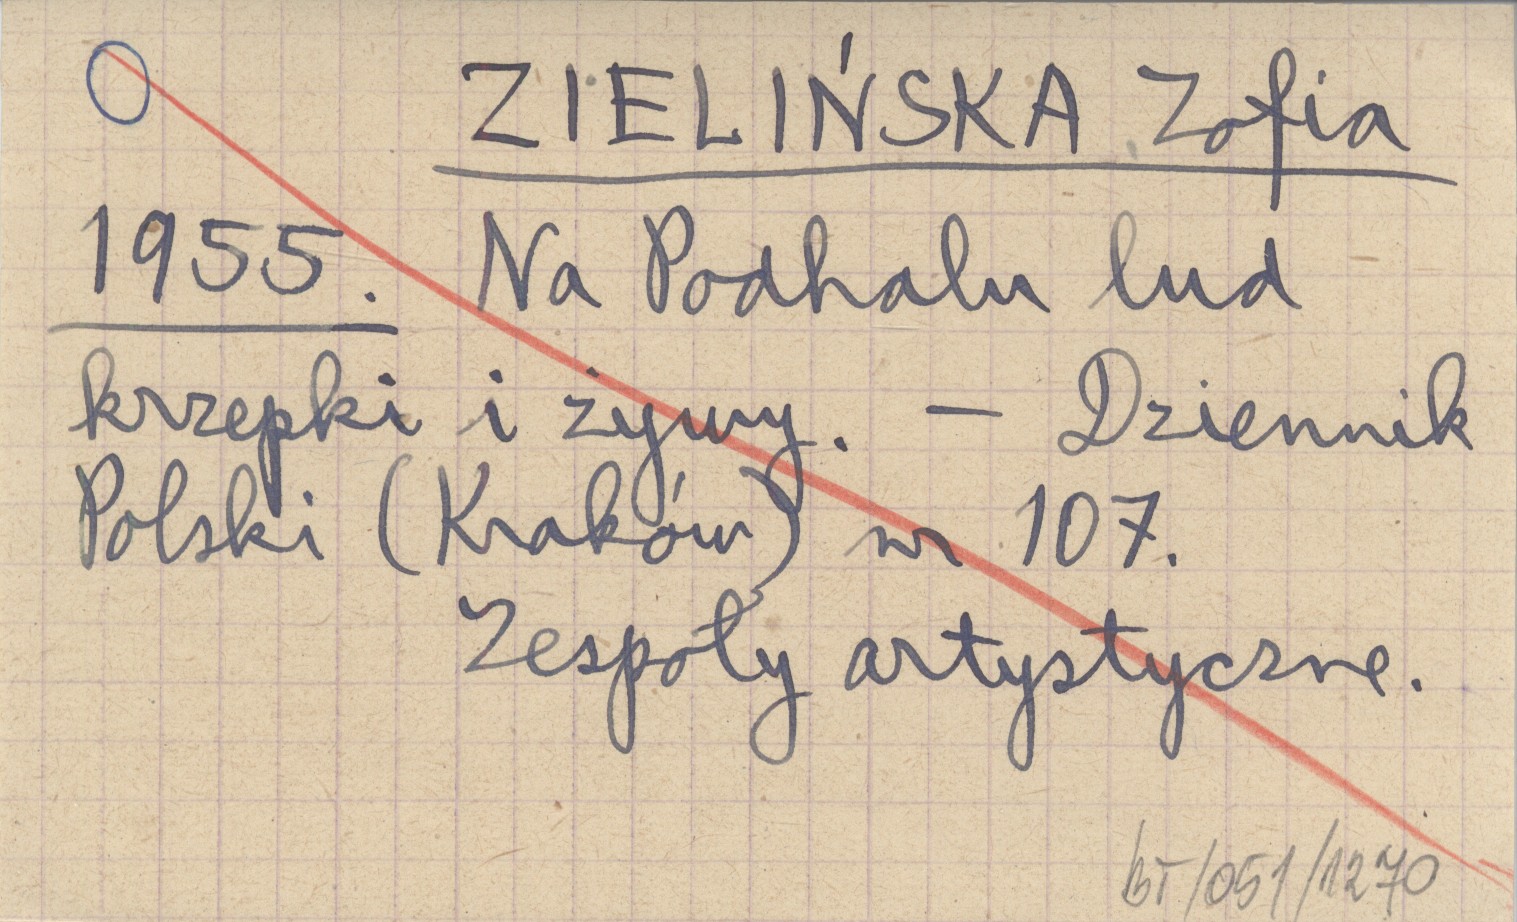 ZIELIŃSKA Zofia
1955. Na Podhalu lud
krzepki i żywy. - Dziennik
Polski (Kraków) nr 107.
Zespoły artystyczne.
BT/051/1270